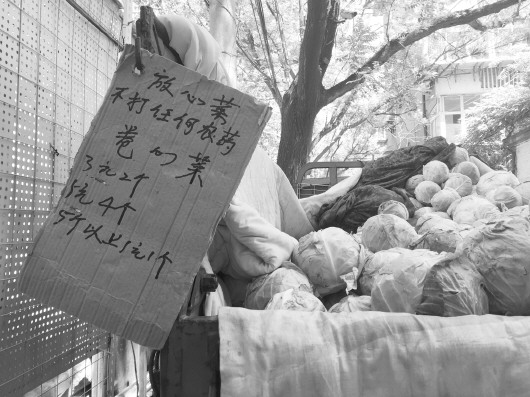 放心菜
不打任何农药
卷心菜
3元2个
5元4个
5个以上1元1个